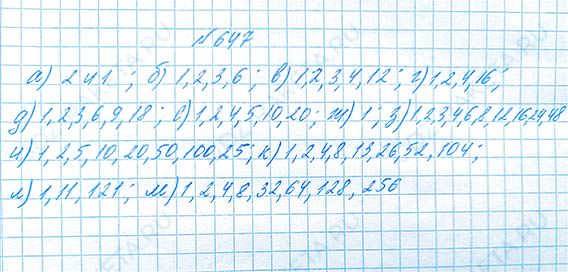 №647
а) 2 и 1; б) 1,2,3,6; в) 1,2,3,4,12; г) 1,2,4,16;
д) 1,2,3,6,9,18; е) 1,2,4,5,10,20; ж) 1; з) 1,2,3,4,6,8,12,16,24,48
и) 1,2,5,10,20,50,100,25; к) 1,2,4,8,13,26,52,104;
л) 1,11,121; м) 1,2,4,8,32,64,128,256